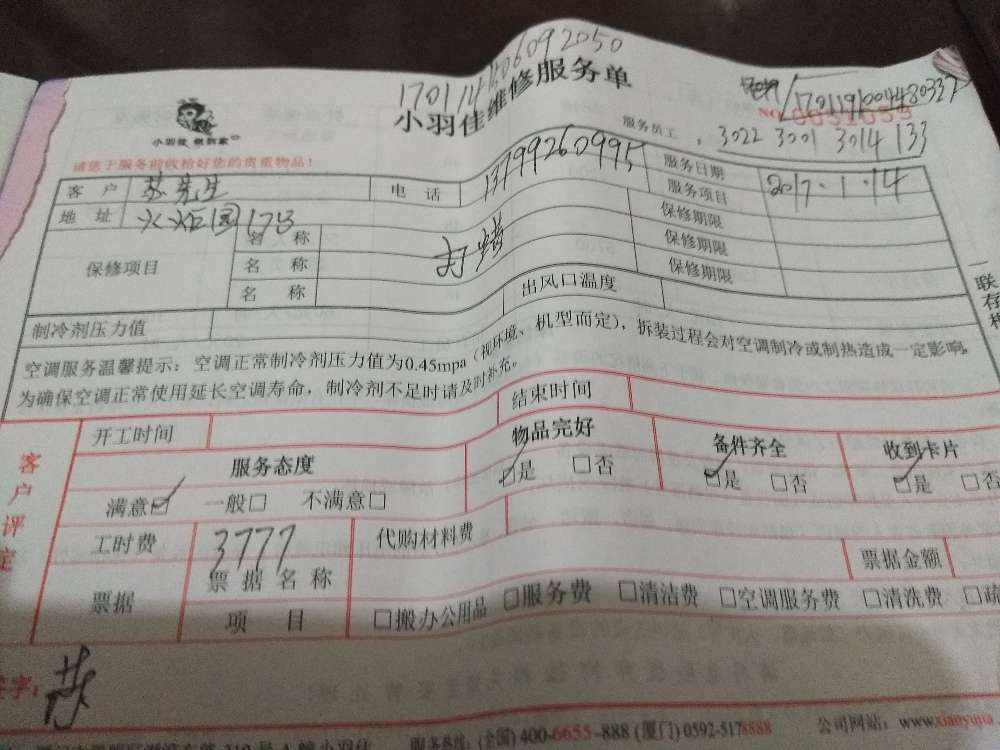 17011414206092050
小羽佳维修服务单
小羽佳 俏到家
NO 0051055
服务员工 3022 3001 3014 133
请您于服务前收拾好您的贵重物品！
客 户 苏先生 电 话 13799260995 服务日期 2017.1.14
地 址 火炬园173 服务项目
保修项目 名 称 打蜡 保修期限
名 称 保修期限
名 称 保修期限
制冷剂压力值 出风口温度
空调服务温馨提示：空调正常制冷剂压力值为0.45mpa（视环境、机型而定），拆装过程会对空调制冷或制热造成一定影响，
为确保空调正常使用延长空调寿命，制冷剂不足时请及时补充。
一联存根
客户评定
开工时间 结束时间
服务态度 物品完好 备件齐全 收到卡片
满意☑ 一般□ 不满意□ ☑是 □否 ☑是 □否 ☑是 □否
工时费 3777 代购材料费
票据 票据名称 票据金额
项 目 □搬办公用品 □服务费 □清洁费 □空调服务费 □清洗费 □疏
签字：
服务热线：(全国) 400-6655-888 (厦门) 0592-5178888 公司网站：www.xiaoyujia